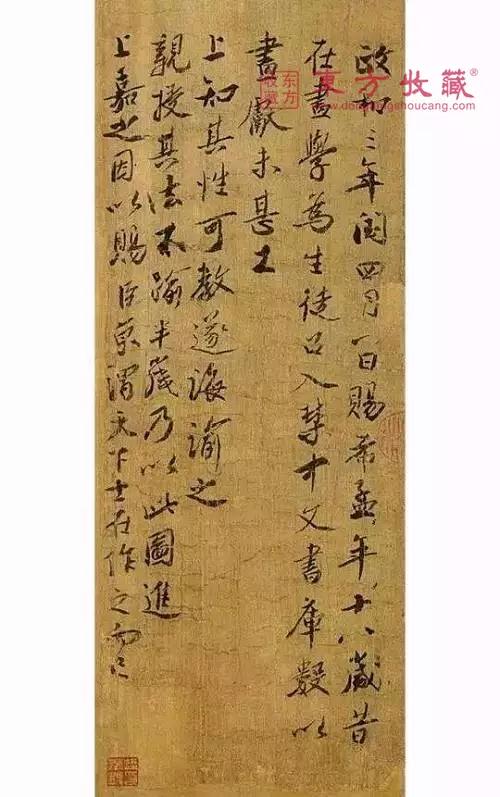 東方收藏®
www.dongfangshoucang.com
东方
收藏
政和三年閏四月一日賜希孟年十八歲昔
在畫學為生徒召入禁中文書庫數以
畫獻未甚工
上知其性可教遂誨諭之
親授其法不踰半歲乃以此圖進
上嘉之因以賜臣京謂天下士在作之而已